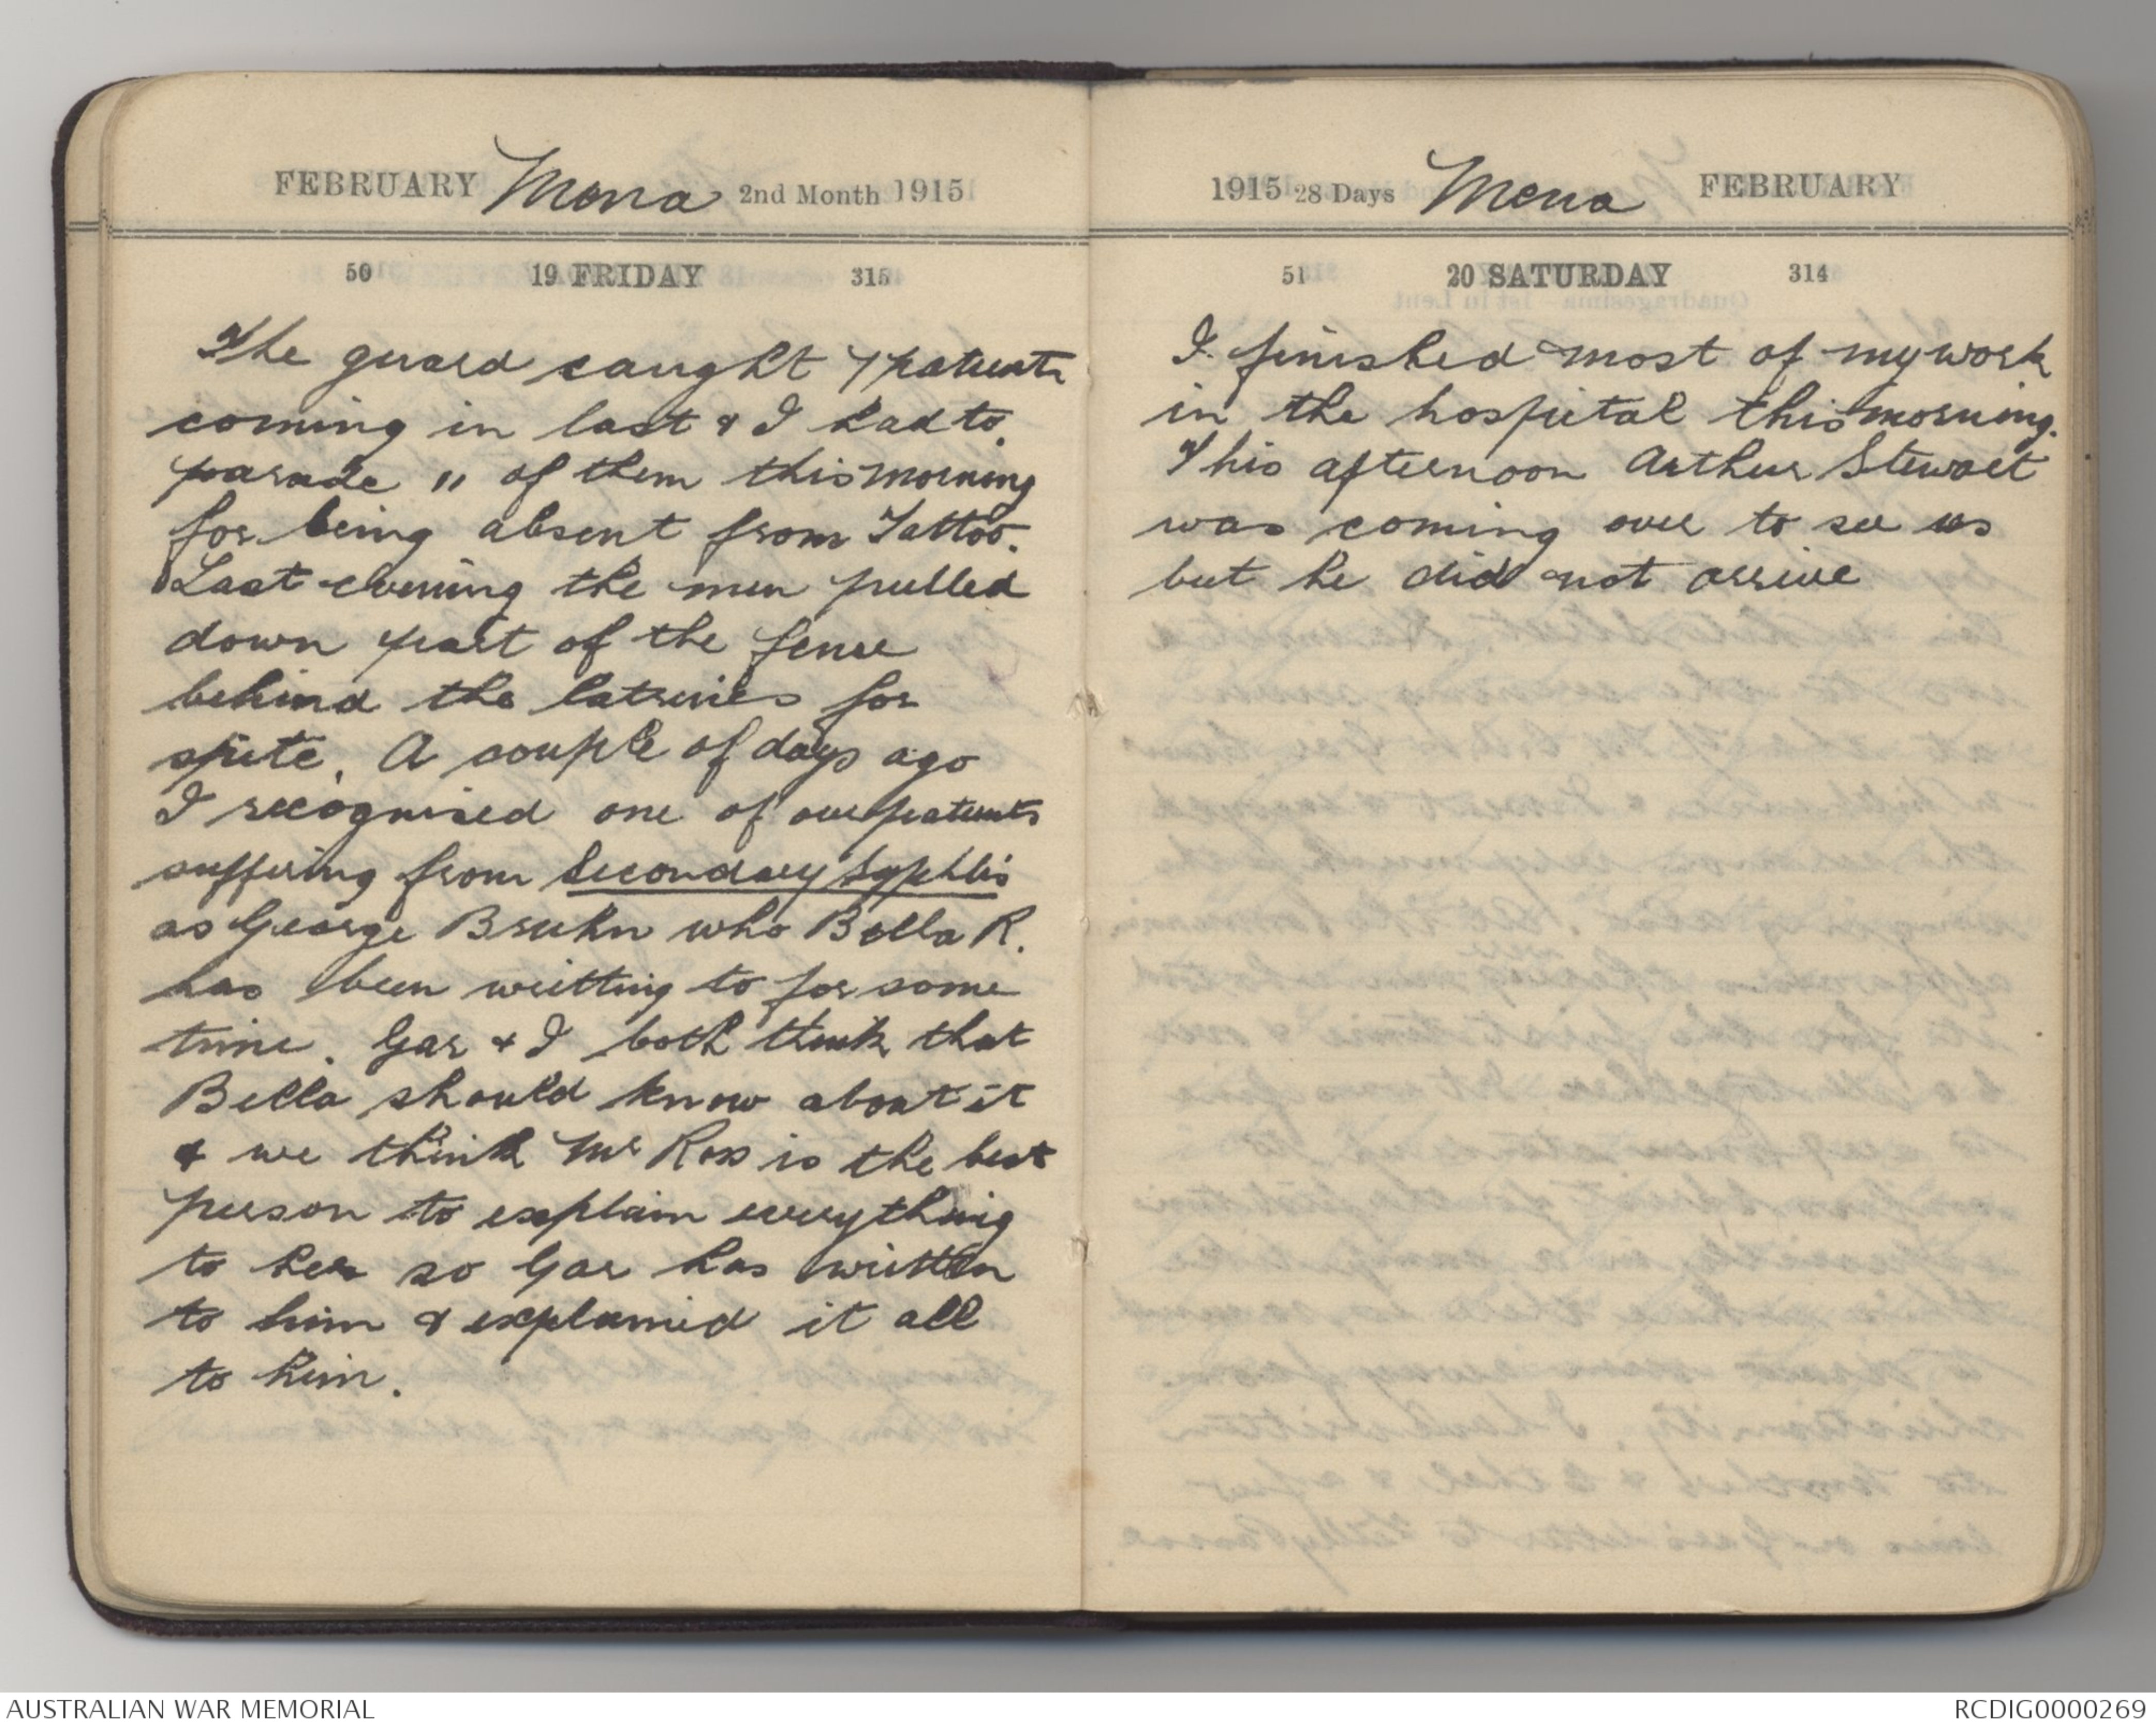 FEBRUARY Mena 2nd Month 1915
50 19 FRIDAY 315
The guard caught 7 patients
coming in last & I had to
parade 11 of them this morning
for being absent from Tattoo.
Last evening the men pulled
down part of the fence
behind the latrines for
spite. A couple of days ago
I recognised one of our patients
suffering from Secondary Syphlis
as George Bruhn who Bella R.
has been writting to for some
time. Gar & I both think that
Bella should know about it
& we think Mr Ross is the best
person to explain everything
to her so Gar has written
to him & explained it all
to him.
1915 28 Days Mena FEBRUARY
51 20 SATURDAY 314
I finished most of my work
in the hospital this morning.
This afternoon Arthur Stewart
was coming over to see us
but he did not arrive
AUSTRALIAN WAR MEMORIAL
RCDIG0000269